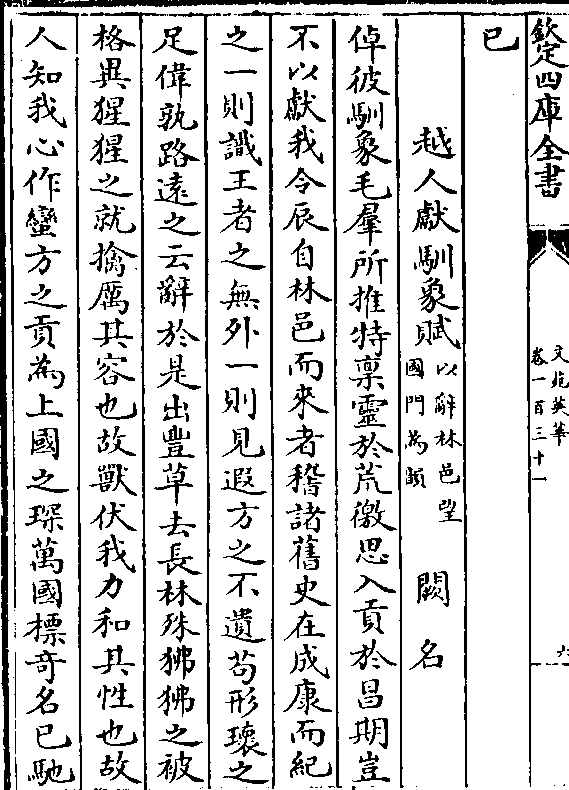 欽定四庫全書
文苑英華
卷一百三十一
六
已
越人獻馴象賦以辭林邑望國門為韻 闕名
倬彼馴象毛羣所推特禀靈於荒徼思入貢於昌期豈
不以獻我令辰自林邑而來者稽諸舊史在成康而紀
之一則識王者之無外一則見遐方之不遺苟形瓌之
足偉孰路遠之云辭於是出豐草去長林殊狒狒之被
格異猩猩之就擒厲其容也故獸伏我力和其性也故
人知我心作蠻方之貢為上國之琛萬國標奇名已馳